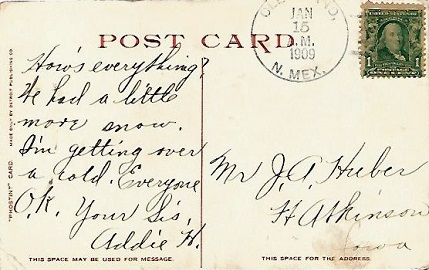 POST CARD
JAN
15
M.
1909
N. MEX.
1
How's everything?
We had a little
more snow.
I'm getting over
a cold. Everyone
O.K. Your Sis,
Addie H.
Mr J. A. Huber
Ft Atkinson
Iowa
"PHOSTINT" CARD
MADE ONLY BY DETROIT PUBLISHING CO.
THIS SPACE MAY BE USED FOR MESSAGE.
THIS SPACE FOR THE ADDRESS.